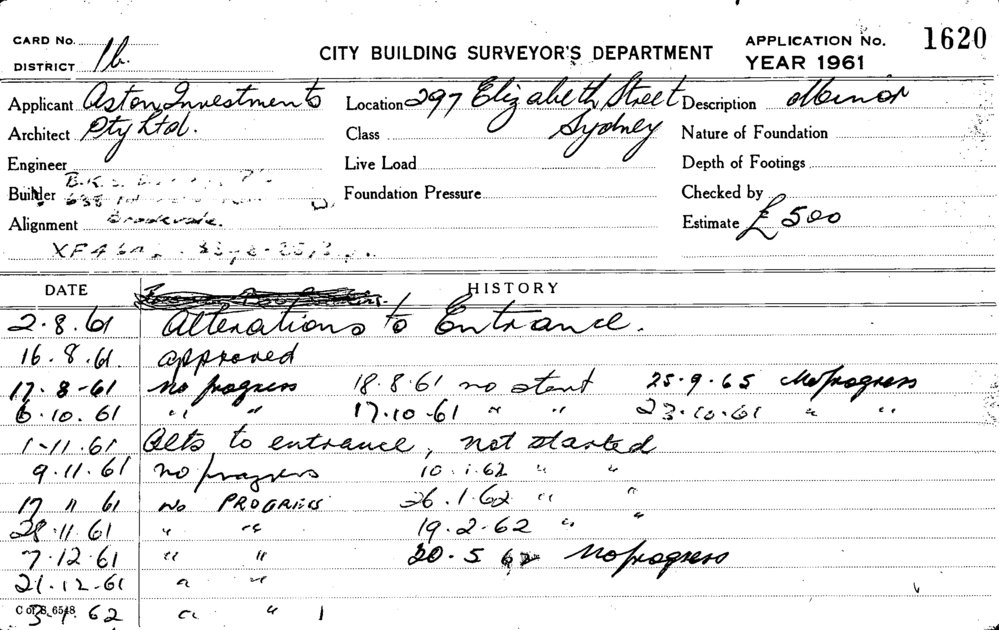 CARD No.
CITY BUILDING SURVEYOR'S DEPARTMENT
APPLICATION No. 1620
DISTRICT 1b.
YEAR 1961
Applicant Aston Investments Location 297 Elizabeth Street Description Minor
Architect Pty Ltd. Class Sydney Nature of Foundation
Engineer Live Load Depth of Footings
Builder Foundation Pressure Checked by
Alignment Brookvale. Estimate £ 500
DATE HISTORY
2.8.61 Alterations to Entrance.
16.8.61. approved
17.8-61 No progress 18.8.61 no start 25.9.65 No progress
6.10.61 " " 17.10-61 " " 23.10.61 " "
1-11.61 Alts to entrance, not started
9.11.61 no progress 10.1.62 " "
17 11 61 No PROGRESS 26.1.62 " "
28.11.61 " " 19.2.62 " "
7.12.61 " " 20.5 62 No progress
21.12.61 " "
C of S. 6548 3.1.62 " "